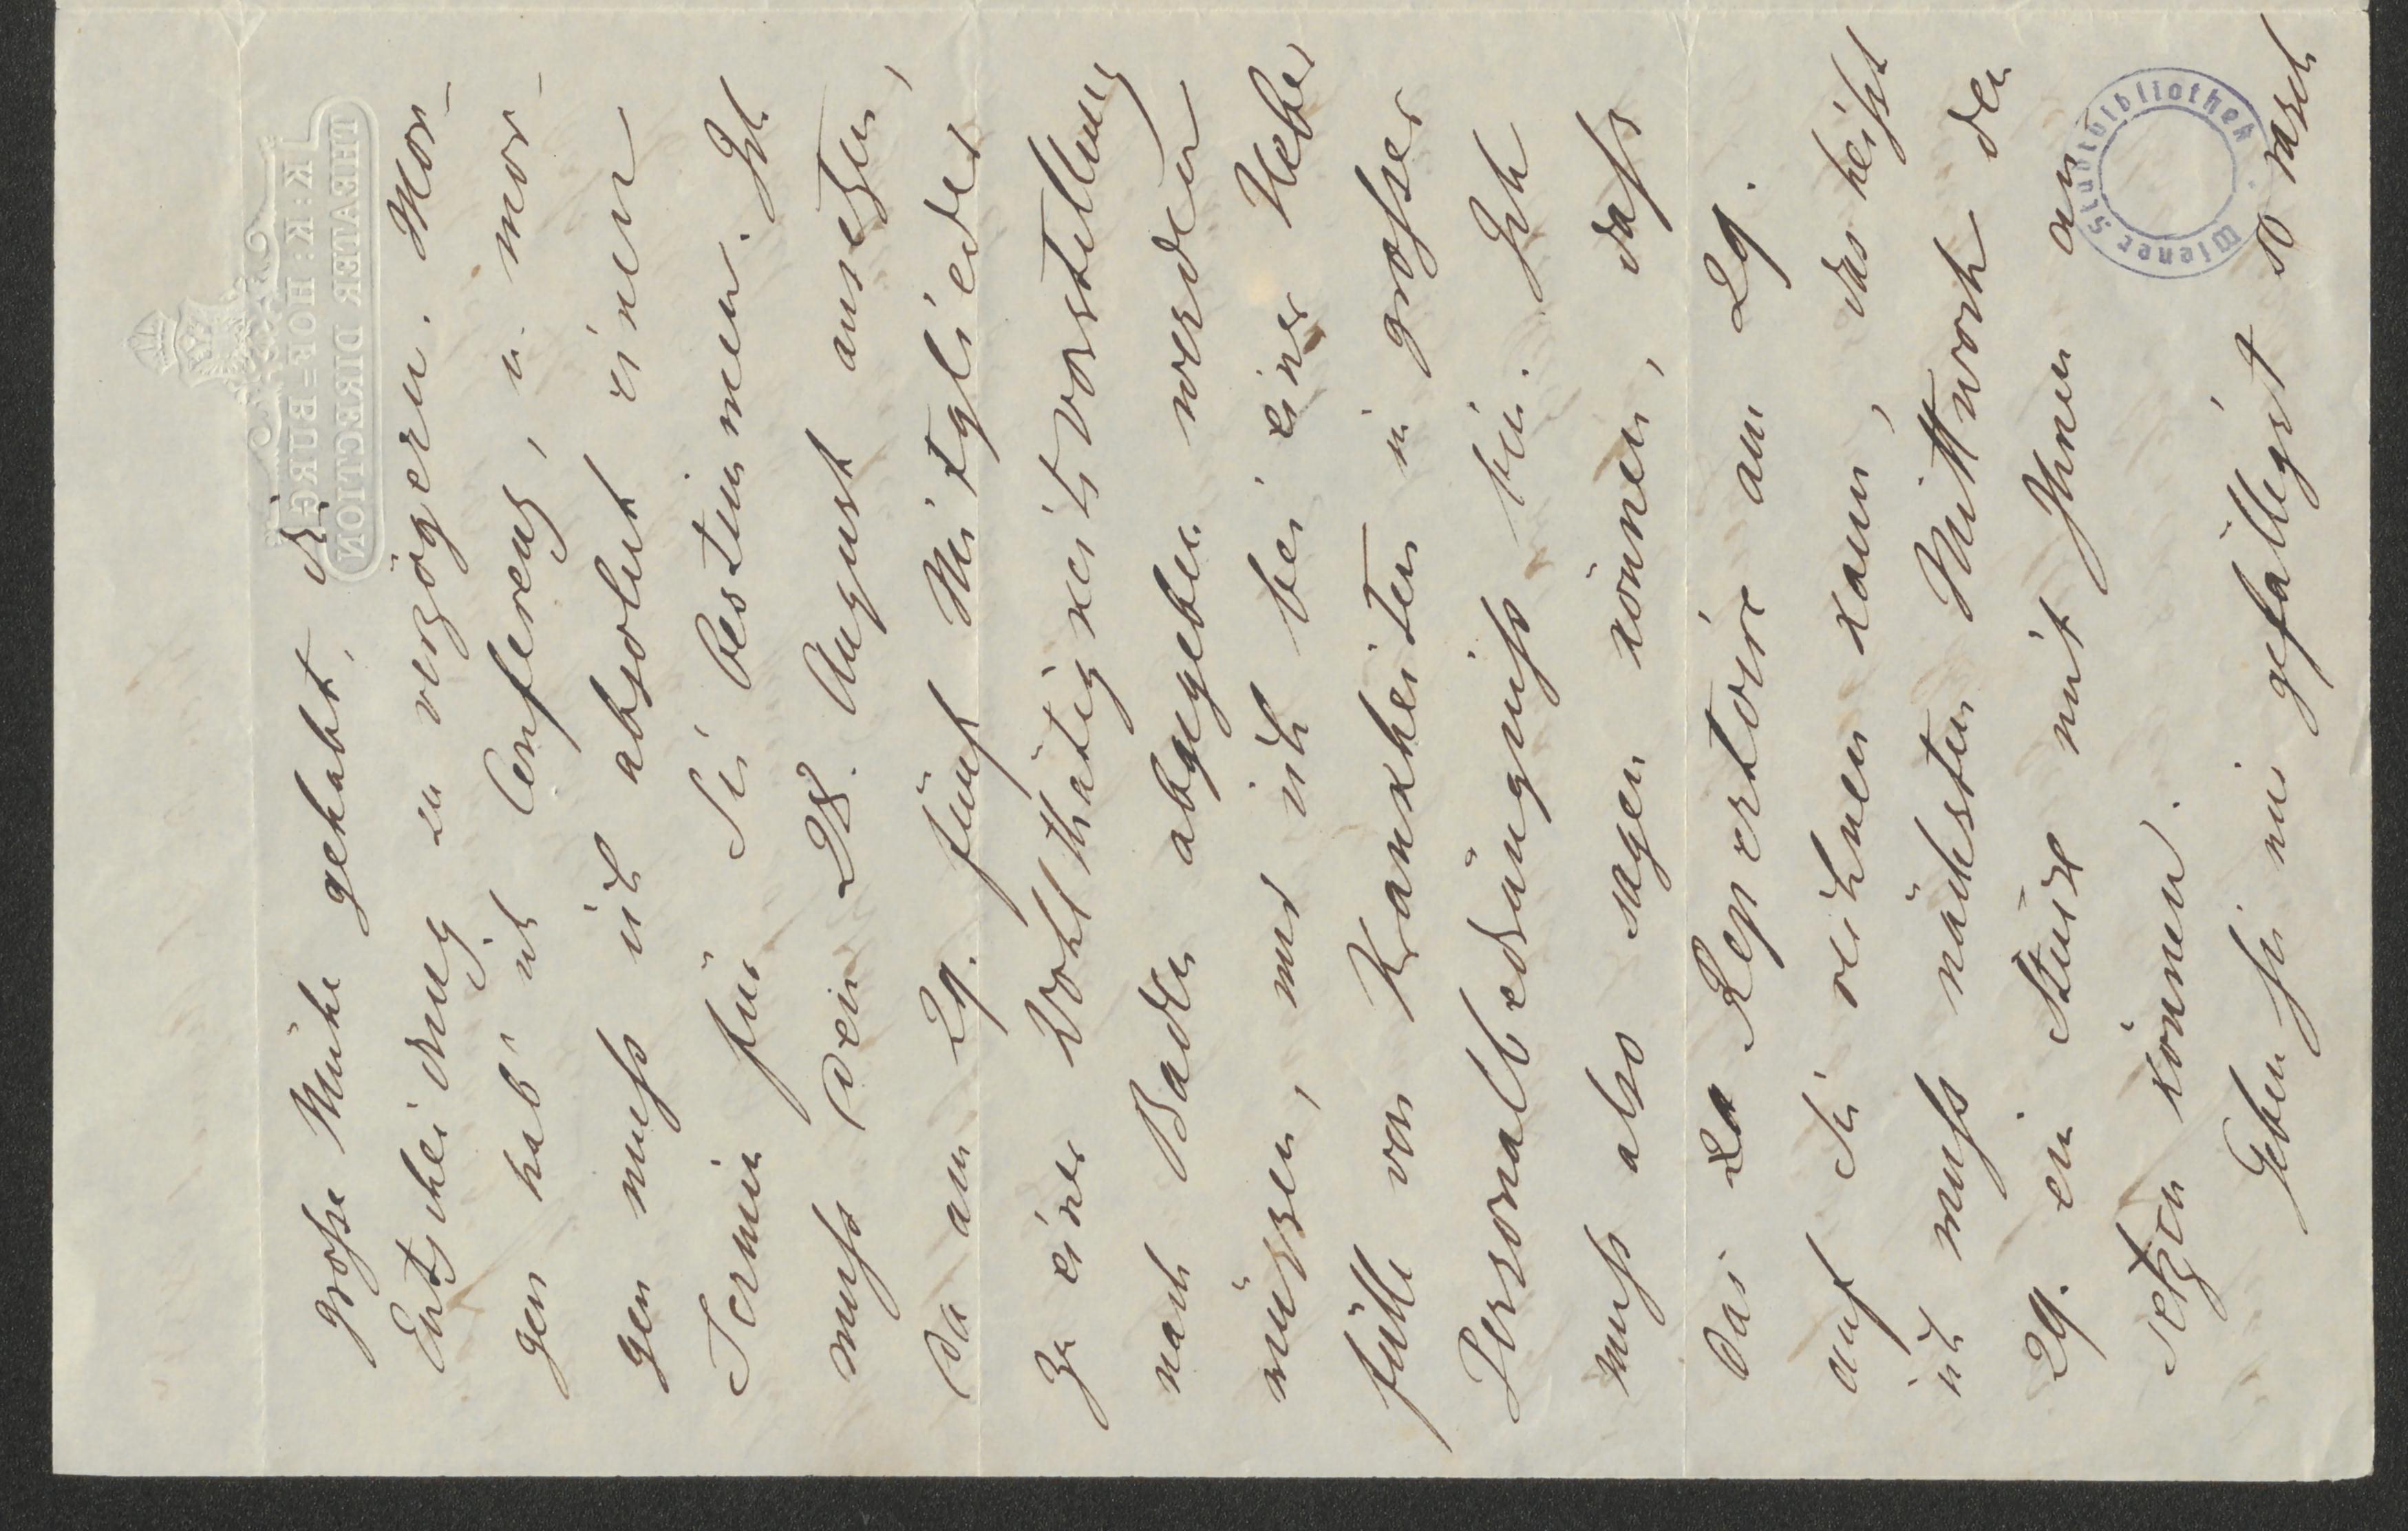 K: K: HOF=BURG
THEATER DIRECTION
große Mühe gehabt, di
Entscheidung zu verzögern. Mor-
gen hab' ich Conferenz, u. mor-
gen muß ich absolut einen
Termin für Sie bestimmen. Ich
muß den 28. August ansetzen,
da am 29. fünf Mitglieder
zu einer Wohlthätigkeitsvorstellung
nach Baden abgegeben werden
müssen, und ich bei einer Ueber
fülle von Krankheiten in großer
Personalbedrängniß bin. Ich
muß also sagen können, daß
das Repertoire am 29.
auf Sie rechnen kann, das heißt
ich muß nächsten Mittwoch den
29. ein Stück mit Ihnen an
setzen können.
Geben Sie mir gefälligst so rasch
Wiener Stadtbibliothek